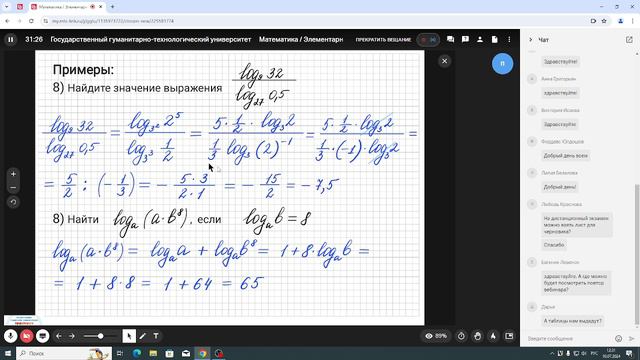 Математика / Элементарн
my.mts-link.ru/j/ggtu/1135973773/stream-new/225581774
31:26 Государственный гуманитарно-технологический университет Математика / Элементарн
ПРЕКРАТИТЬ ВЕЩАНИЕ
п
Примеры:
8) Найдите значение выражения log₉ 32 / log₂₇ 0,5
log₉ 32 / log₂₇ 0,5 = log₃² 2⁵ / log₃³ 1/2 = 5 · 1/2 · log₃ 2 / 1/3 log₃ (2)⁻¹ = 5 · 1/2 · log₃ 2 / 1/3 · (-1) · log₃ 2 =
= 5/2 : (- 1/3) = - 5 · 3 / 2 · 1 = - 15/2 = - 7,5
8) Найти logₐ (a · b⁸), если logₐ b = 8
logₐ (a · b⁸) = logₐ a + logₐ b⁸ = 1 + 8 · logₐ b =
= 1 + 8 · 8 = 1 + 64 = 65
89%
Чат
Здравствуйте!
Анна Григорьян
здравствуйте!
Виктория Исакова
Здравствуйте!
Добрый день всем
Добрый день!
Любовь Краснова
На дистанционный экзамен можно взять лист для черновика?
Спасибо
здравствуйте. А где можно будет посмотреть повтор вебинара?
Дарья
А таблицы нам выдадут?
Введите сообщение
РУС
12:31
10.07.2024